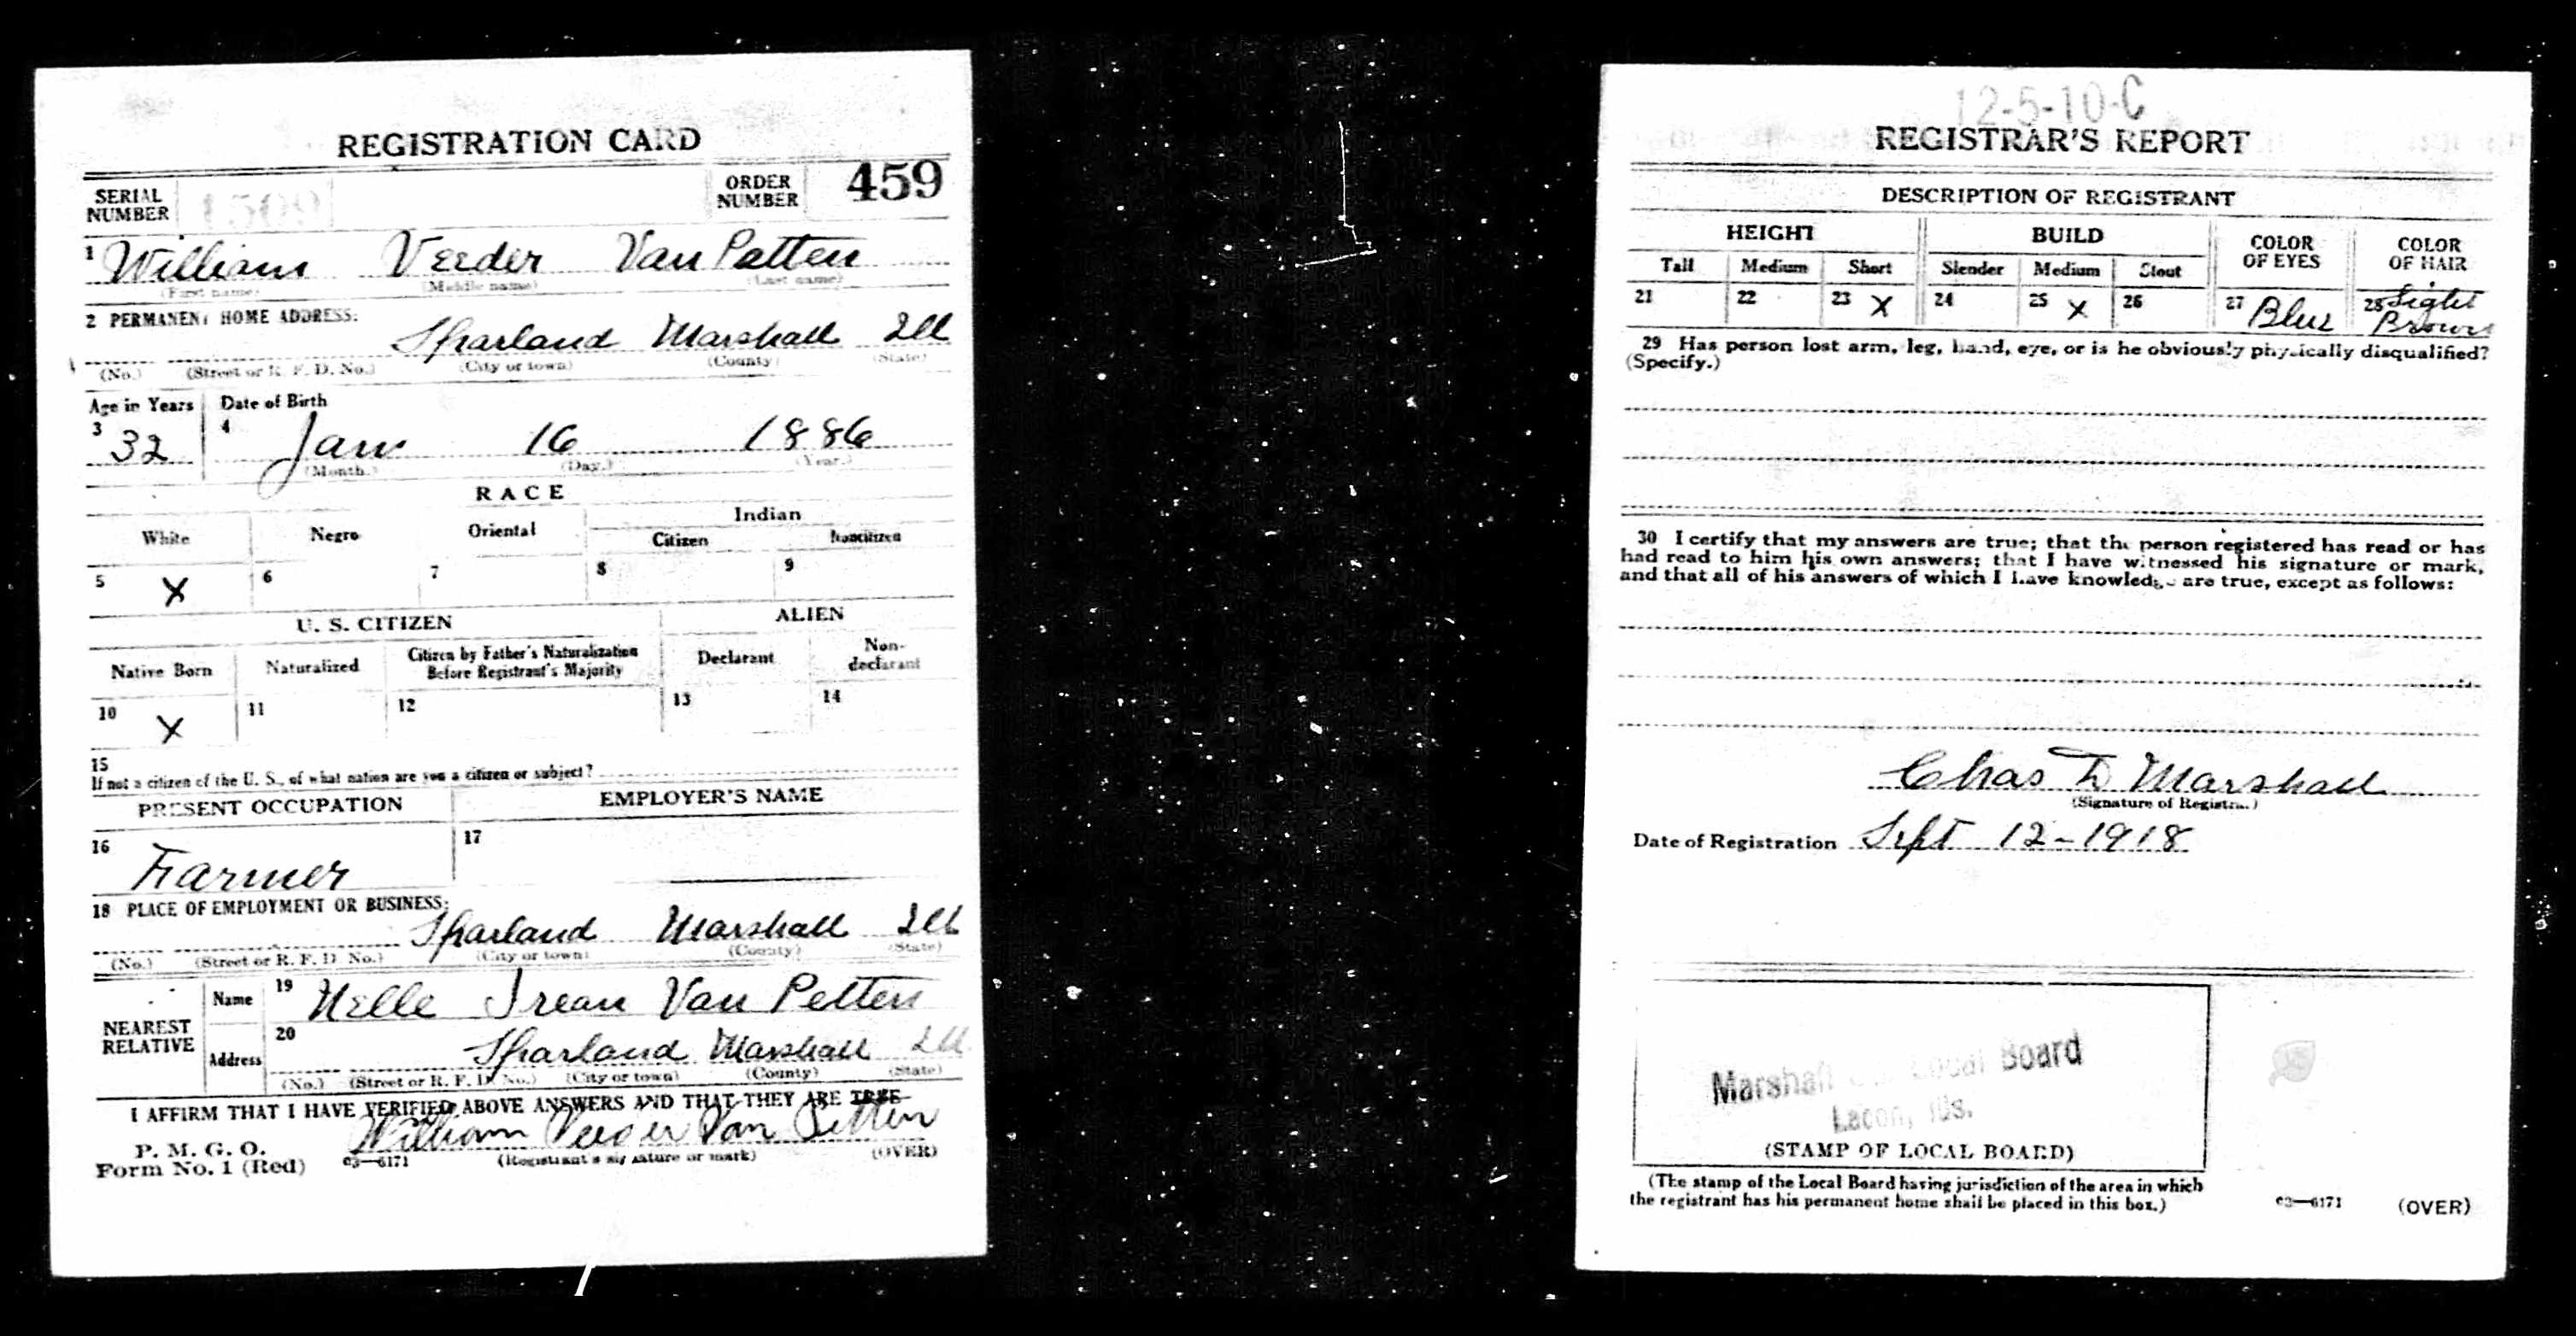 REGISTRATION CARD
SERIAL NUMBER 1509 ORDER NUMBER 459
1 William Veeder Van Patten
(First name) (Middle name) (Last name)
2 PERMANENT HOME ADDRESS:
Sparland Marshall Ill
(No.) (Street or R. F. D. No.) (City or town) (County) (State)
Age in Years Date of Birth
3 32 4 Jan 16 1886
(Month.) (Day.) (Year.)
RACE
White Negro Oriental Indian
Citizen Noncitizen
5 X 6 7 8 9
U. S. CITIZEN ALIEN
Native Born Naturalized Citizen by Father's Naturalization Before Registrant's Majority Declarant Non-declarant
10 X 11 12 13 14
15
If not a citizen of the U. S., of what nation are you a citizen or subject?
PRESENT OCCUPATION EMPLOYER'S NAME
16 Farmer 17
18 PLACE OF EMPLOYMENT OR BUSINESS:
Sparland Marshall Ill
(No.) (Street or R. F. D. No.) (City or town) (County) (State)
NEAREST RELATIVE
Name 19 Nelle Irean Van Petten
Address 20 Sparland Marshall Ill
(No.) (Street or R. F. D. No.) (City or town) (County) (State)
I AFFIRM THAT I HAVE VERIFIED ABOVE ANSWERS AND THAT THEY ARE TRUE
P. M. G. O.
Form No. 1 (Red) 03—6171 William Veeder Van Petten
(Registrant's signature or mark) (OVER)
12-5-10-C
REGISTRAR'S REPORT
DESCRIPTION OF REGISTRANT
HEIGHT BUILD COLOR OF EYES COLOR OF HAIR
Tall Medium Short Slender Medium Stout
21 22 23 X 24 25 X 26 27 Blue 28 Light Brown
29 Has person lost arm, leg, hand, eye, or is he obviously physically disqualified?
(Specify.)
30 I certify that my answers are true; that the person registered has read or has
had read to him his own answers; that I have witnessed his signature or mark,
and that all of his answers of which I have knowledge are true, except as follows:
Chas D Marshall
(Signature of Registrar.)
Date of Registration Sept 12-1918
Marshall Co. Local Board
Lacon, Ills.
(STAMP OF LOCAL BOARD)
(The stamp of the Local Board having jurisdiction of the area in which
the registrant has his permanent home shall be placed in this box.)
03—6171 (OVER)